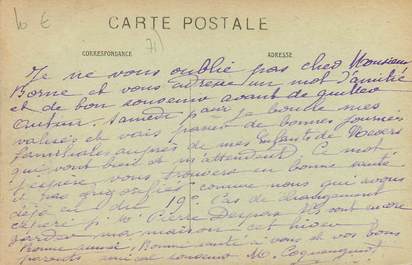 10 €
71)
CARTE POSTALE
CORRESPONDANCE
ADRESSE
Je ne vous oublie pas cher Monsieur
Borne et vous adresse un mot d'amitié
et de bon souvenir avant de quitter
samedi je boucle mes
valises et vais passer de bonnes journées
familiales auprès de mes Enfants de Nevers
qui vont bien et m'attendent. Ce mot
j'espère vous trouvera en bonne santé
et pas comme nous qui avons
déjà eu du 19°. Pas de changement
espéré p. Mr Pierre ils vont encore
garder ma maison cet hiver
Bonne santé à vous et vos bons
parents amical souvenir M.